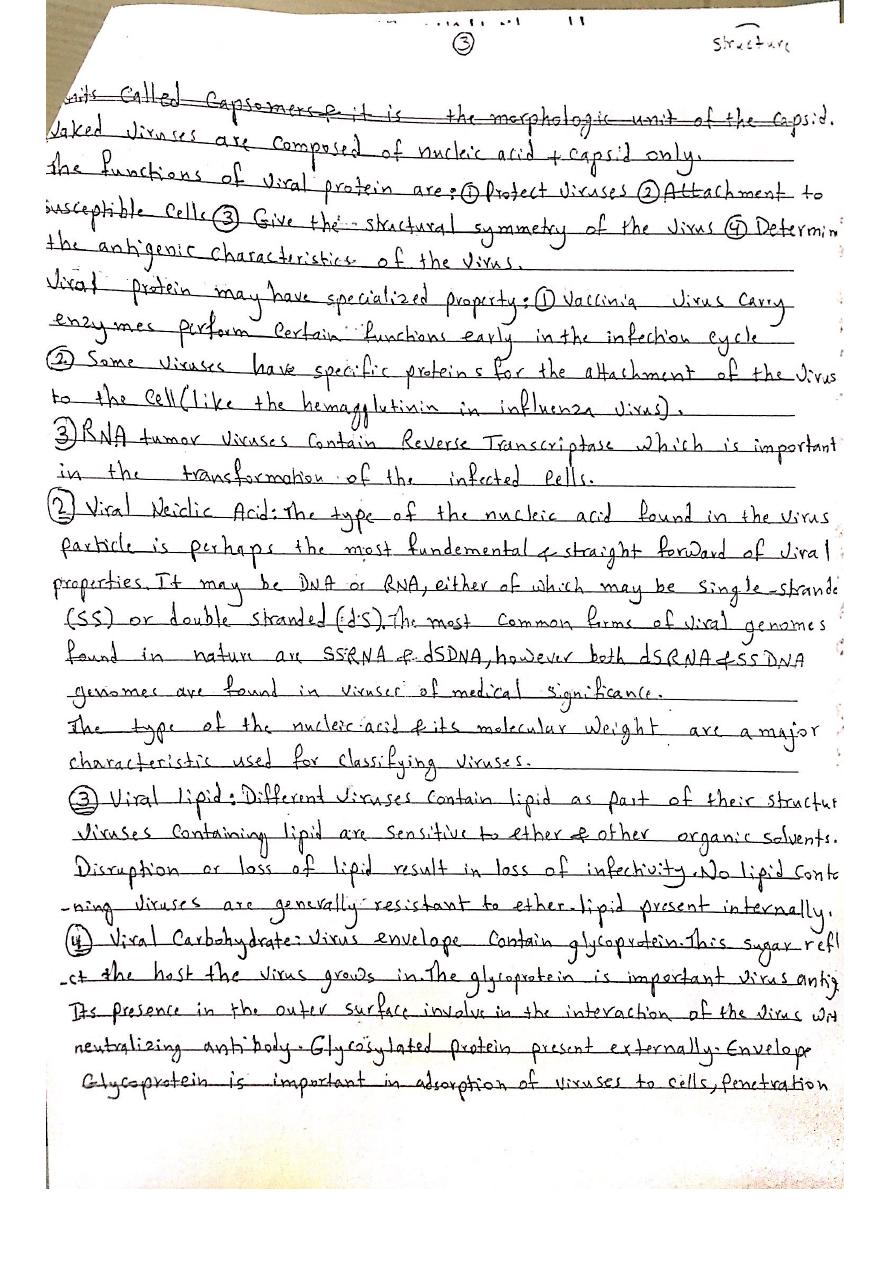 ③
Structure
nits Called Capsomers & it is the morphologic unit of the Capsid.
Naked Viruses are composed of nucleic acid + capsid only.
The functions of viral protein are: ① Protect Viruses ② Attachment to
susceptible Cells ③ Give the structural symmetry of the Virus ④ Determin
the antigenic Characteristics of the Virus.
Viral protein may have specialized property: ① Vaccinia Virus Carry
enzymes perform Certain functions early in the infection cycle
② Some Viruses have specific proteins for the attachment of the Virus
to the Cell (like the hemagglutinin in influenza Virus).
③ RNA tumor Viruses Contain Reverse Transcriptase Which is important
in the transformation of the infected Cells.
② Viral Neiclic Acid: The type of the nucleic acid found in the Virus
particle is perhaps the most fundemental & straight forward of Viral
properties. It may be DNA or RNA, either of which may be Single-strande
(SS) or double stranded (dS). The most Common forms of Viral genomes
found in nature are SSRNA & dSDNA, however both dSRNA & SSDNA
genomes are found in viruses of medical significance.
The type of the nucleic acid & its molecular Weight are a major
characteristic used for classifying Viruses.
③ Viral lipid: Different Viruses Contain lipid as part of their structur
Viruses Containing lipid are Sensitive to ether & other organic solvents.
Disruption or loss of lipid result in loss of infectivity. No lipid Conta
-ning Viruses are generally resistant to ether-lipid present internally.
④ Viral Carbohydrate: Virus envelope Contain glycoprotein. This sugar refl
-ct the host the Virus grows in. The glycoprotein is important Virus antig
Its presence in the outer surface involve in the interaction of the Virus Wit
neutralizing antibody. Glycosylated Protein present externally. Envelope
Glycoprotein is important in adsorption of Viruses to cells, Penetration